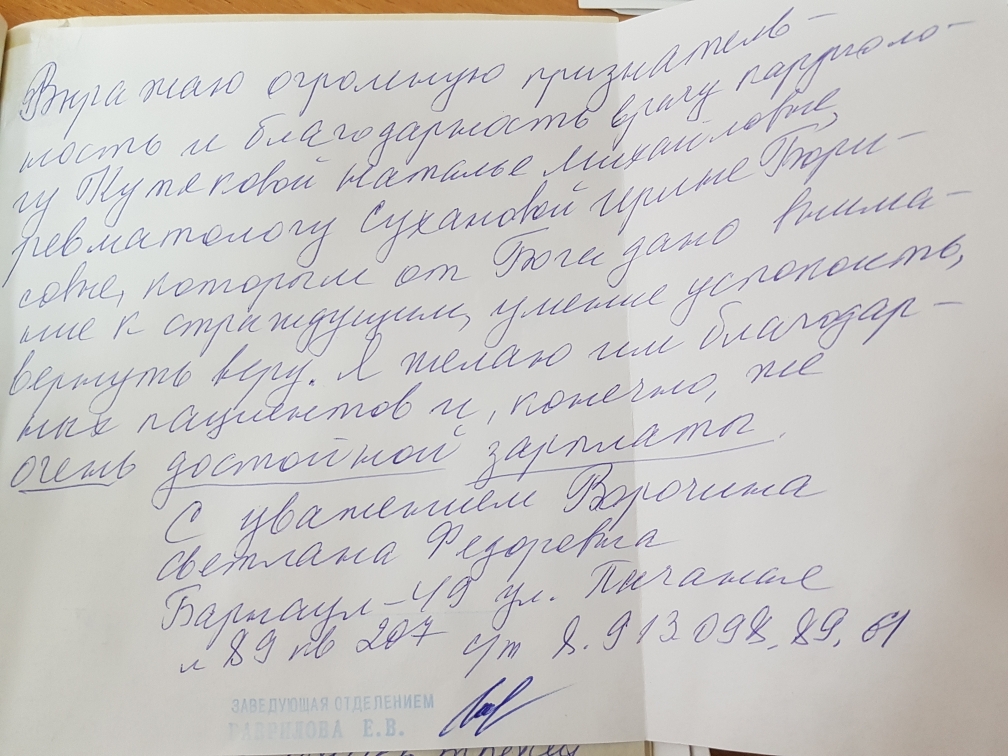 Выражаю огромную признатель-
ность и благодарность врачу кардиоло-
гу Кутяковой Наталье Михайловне,
ревматологу Сухановой Ирине Бори-
совне, которым от Бога дано внима-
ние к страждущим, умение успокоить,
вернуть веру. Я желаю им благодар-
ных пациентов и, конечно, же
очень достойной зарплаты.
С уважением
Светлана Федоровна
Барнаул-49 ул.
89 кв 207 с/т 8.913.098.89.61
ЗАВЕДУЮЩАЯ ОТДЕЛЕНИЕМ
ГАВРИЛОВА Е.В.